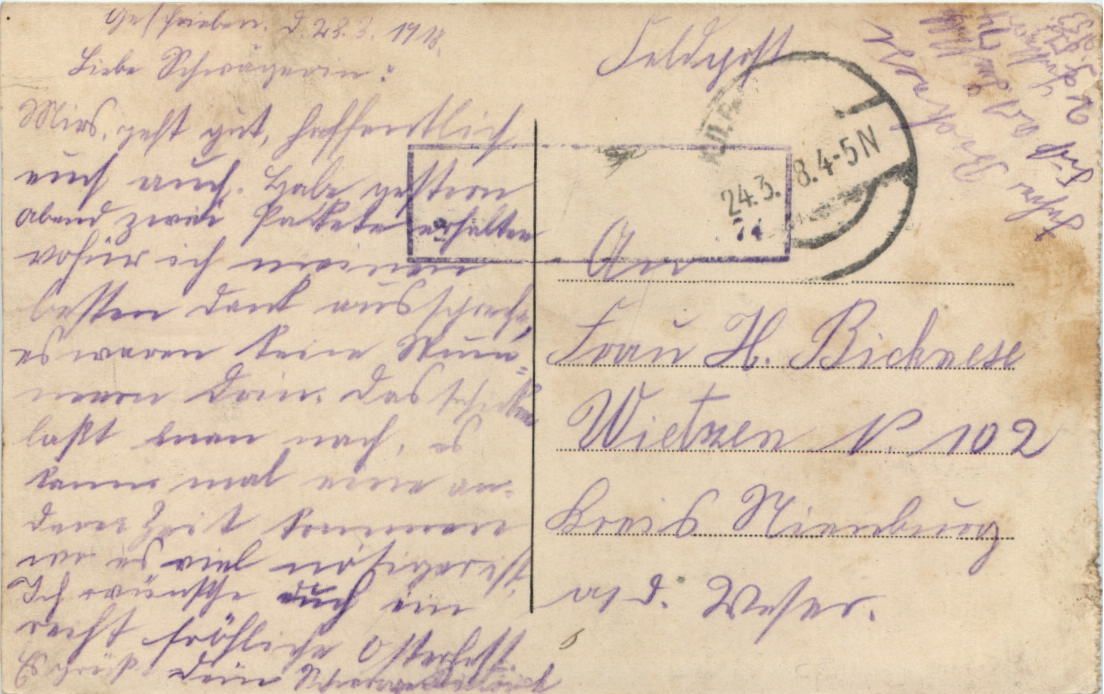 Geschrieben. d. 23.3. 1918.
Liebe Schwägerin!
Mirs. geht gut, hoffentlich
euch auch. Habe gestern
Abend zwei Pakete erhalten
wofür ich meinen
besten Dank ausspreche,
es waren keine
drin. Das schicken
laßt man nach, es
kann mal eine an-
dere Zeit kommen
wo es viel nötiger ist.
Ich wünsche euch ein
recht fröhliche Osterfest.
Es grüßt Dein Schwager
Feldpost
24.3. 8.4-5N
An
Frau H. Bicknese
Wietzen N. 102
Kreis Nienburg
a/d. Weser.